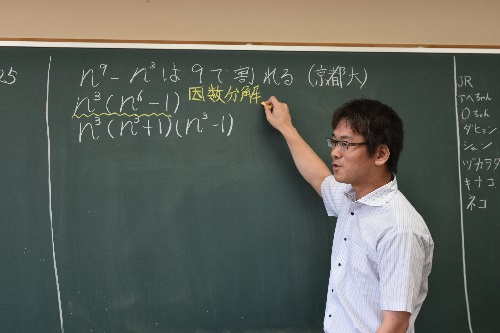 25
n⁹-n³は9で割れる(京都大)
n³(n⁶-1) 因数分解
n³(n³+1)(n³-1)
JR
アベちゃん
Oちゃん
ダヒョン
シュン
ヅカラダ
キナコ
ネコ